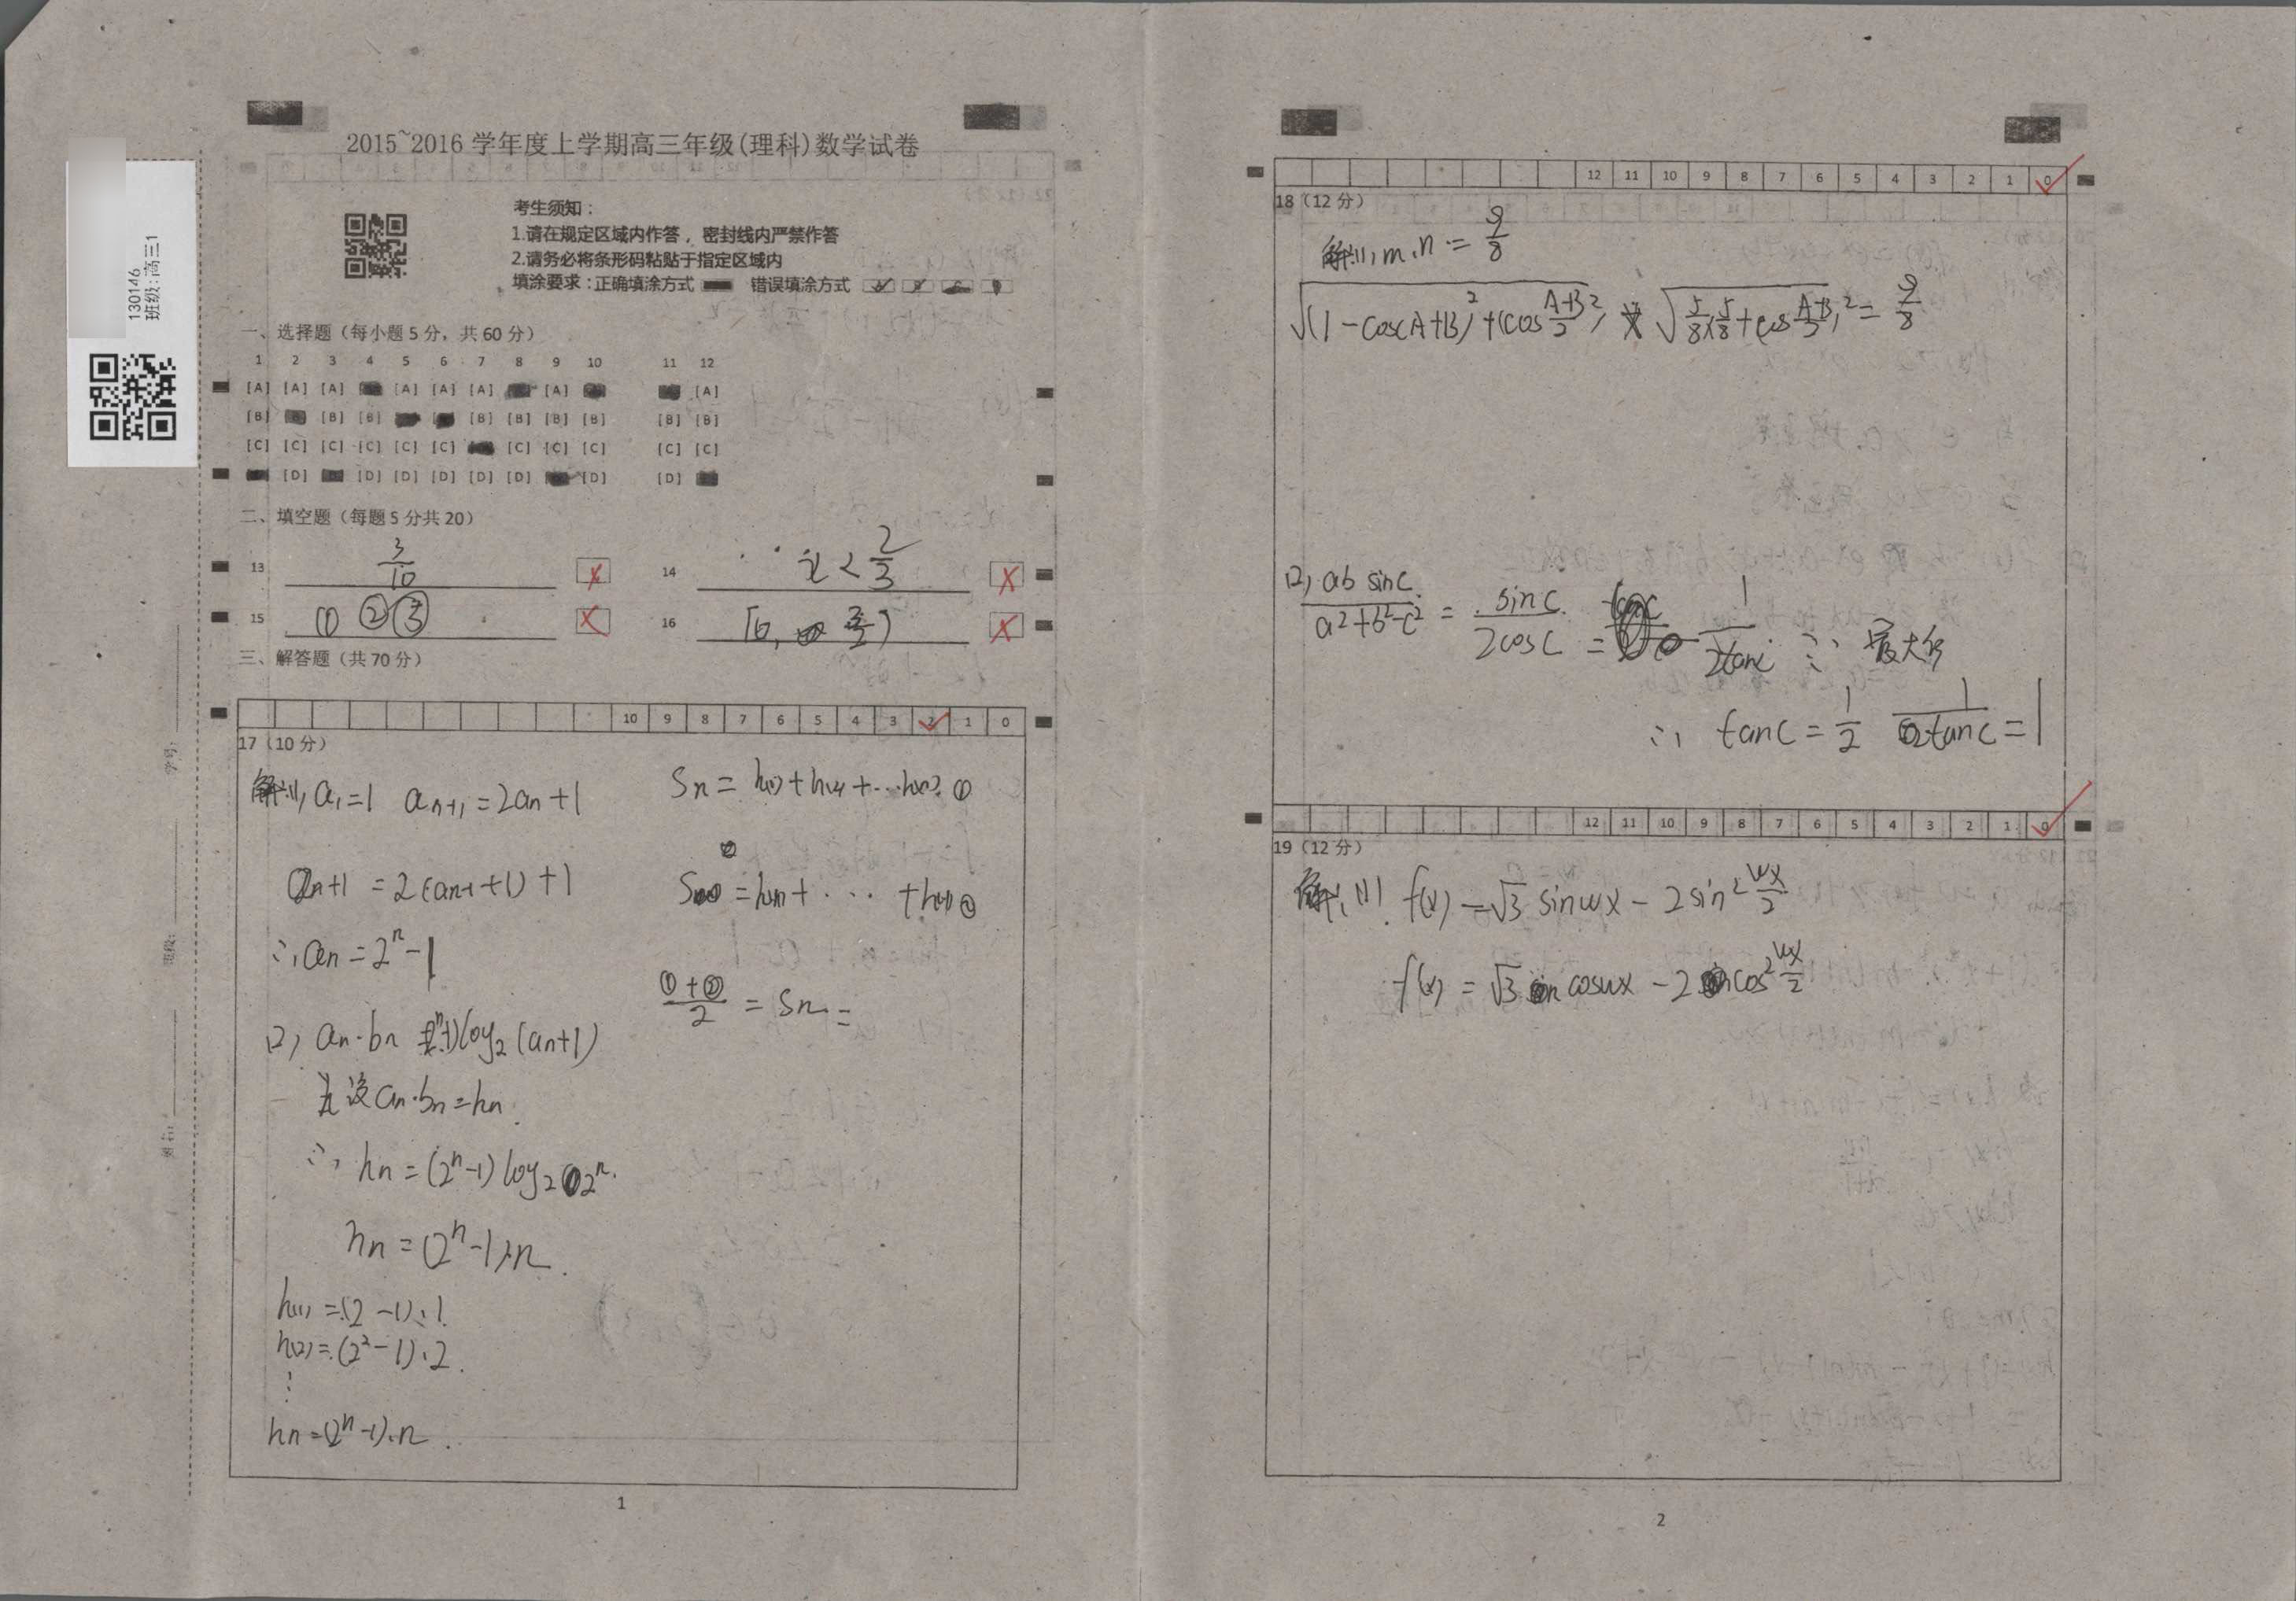 2015~2016 学年度上学期高三年级(理科)数学试卷
130146
班级:高三1
考生须知：
1.请在规定区域内作答，密封线内严禁作答
2.请务必将条形码粘贴于指定区域内
填涂要求：正确填涂方式 错误填涂方式
一、选择题（每小题 5 分，共 60 分）
1 2 3 4 5 6 7 8 9 10 11 12
[A] [A] [A] [A] [A] [A] [A] [A]
[B] [B] [B] [B] [B] [B] [B] [B] [B]
[C] [C] [C] [C] [C] [C] [C] [C] [C] [C] [C]
[D] [D] [D] [D] [D] [D] [D] [D]
二、填空题（每题 5 分共 20）
13 3/10 14 i<2/3
15 ①②③ 16
三、解答题（共 70 分）
10 9 8 7 6 5 4 3 2 1 0
17（10 分）
解:(1), a₁=1 aₙ₊₁=2aₙ+1
∴aₙ=2ⁿ-1
设aₙ·bₙ=hₙ
∴ hₙ=(2ⁿ-1)log₂2ⁿ
hₙ=(2ⁿ-1)·n
h(1)=(2-1)·1
h(2)=(2²-1)·2
⋮
hₙ=(2ⁿ-1)·n
Sₙ= h(1)+h(2)+…h(n) ①
(①+②)/2 = Sₙ =
学号：
班级：
姓名：
1
12 11 10 9 8 7 6 5 4 3 2 1 0
18（12 分）
解:(1), m·n = 9/8
√((1-cos(A+B))²+(cos (A+B)/2)²)
(2), ab sinC/(a²+b²-c²) = sinC/(2cosC) = 1/(2tanC) ∵ 最大的
∴ tanC=1/2 1/(2tanC)=1
12 11 10 9 8 7 6 5 4 3 2 1 0
19（12 分）
解:(1) f(x)=√3 sinwx-2sin² wx/2
f(x)=√3 coswx-2cos² wx/2
2